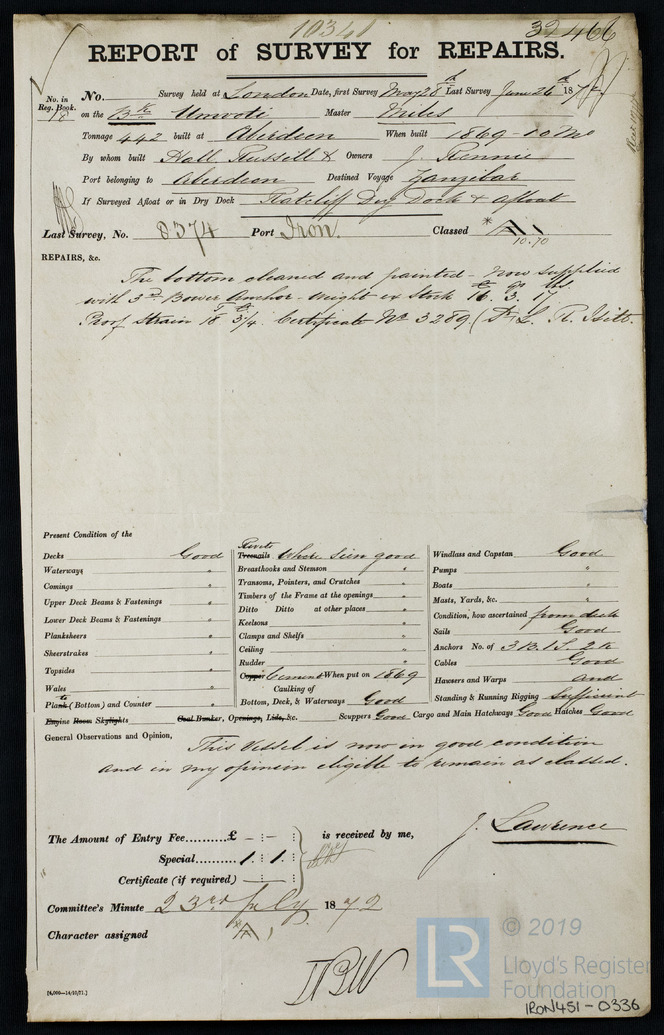 10341 32466
REPORT of SURVEY for REPAIRS.
No. in Reg. Book. No. Survey held at London Date, first Survey May 28th Last Survey June 26th 1872
18 on the Bk Umvoti Master Miles
Tonnage 442 built at Aberdeen When built 1869-10 Mo
By whom built Hall Russell & Owners J. Rennie
Port belonging to Aberdeen Destined Voyage Zanzibar
If Surveyed Afloat or in Dry Dock Ratcliff Dry Dock & Afloat
Last Survey, No. 8374 Port Iron. Classed * A 1
10.70
REPAIRS, &c.
The bottom cleaned and painted - Now supplied
with 3rd Bower Anchor - weight ex Stock 16. 3. 17
Proof strain 18 3/4. Certificate No 3289. L. R. Isitt.
Present Condition of the
Decks Good
Waterways "
Comings "
Upper Deck Beams & Fastenings "
Lower Deck Beams & Fastenings "
Planksheers "
Sheerstrakes "
Topsides "
Wales "
Plank (Bottom) and Counter "
Engine Room Skylights Coal Bunker, Openings, Lids, &c. Scuppers Good Cargo and Main Hatchways Good Hatches Good
Rivets
Treenails Where seen good
Breasthooks and Stemson "
Transoms, Pointers, and Crutches "
Timbers of the Frame at the openings "
Ditto Ditto at other places "
Keelsons "
Clamps and Shelfs "
Ceiling "
Rudder "
Copper Cement When put on 1869
Caulking of
Bottom, Deck, & Waterways Good
Windlass and Capstan Good
Pumps "
Boats "
Masts, Yards, &c. "
Condition, how ascertained from deck
Sails Good
Anchors No. of 3B. 1S. 2K
Cables Good
Hawsers and Warps and
Standing & Running Rigging Sufficient
General Observations and Opinion,
This Vessel is now in good condition
and in my opinion eligible to remain as classed.
J. Lawrence
The Amount of Entry Fee..........£ - : - : is received by me,
Special.......... 1 : 1 :
Certificate (if required)
Committee's Minute 23rd July 1872
Character assigned *A 1
[4,000—14/10/71.]
LR
© 2019
Lloyd's Register
Foundation
IRON451-0336